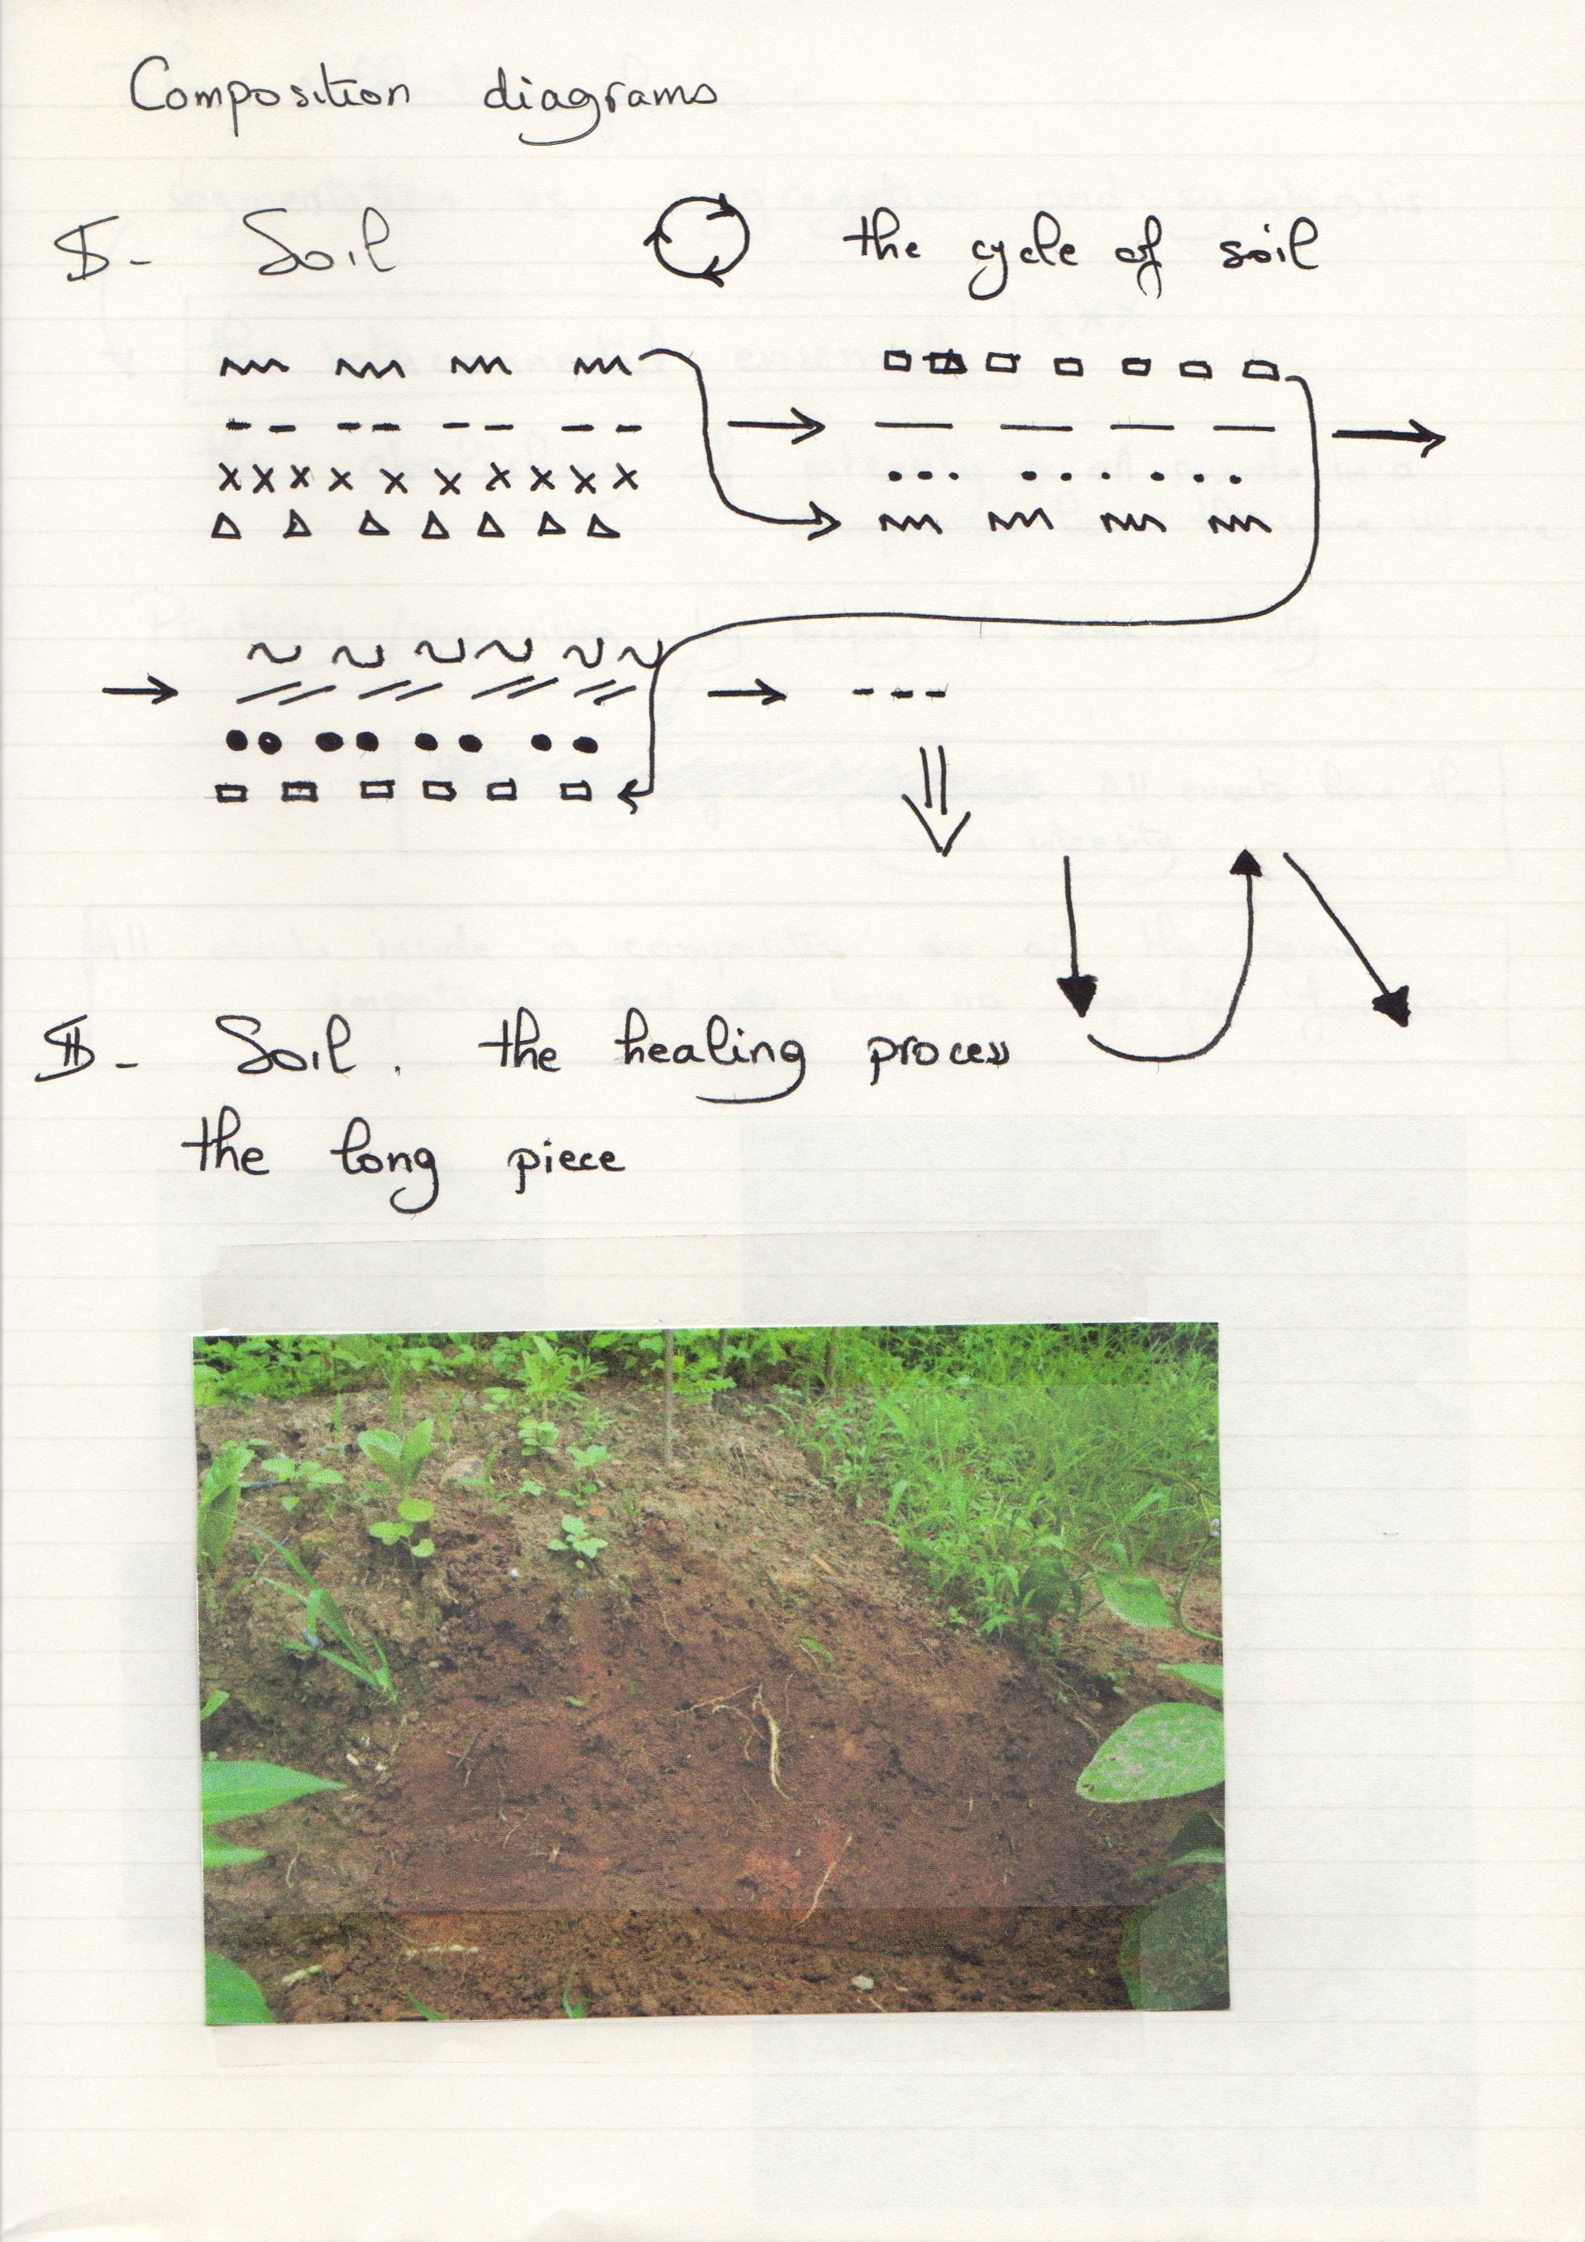 Composition diagrams
I- Soil the cycle of soil
II- Soil. the healing process
the long piece